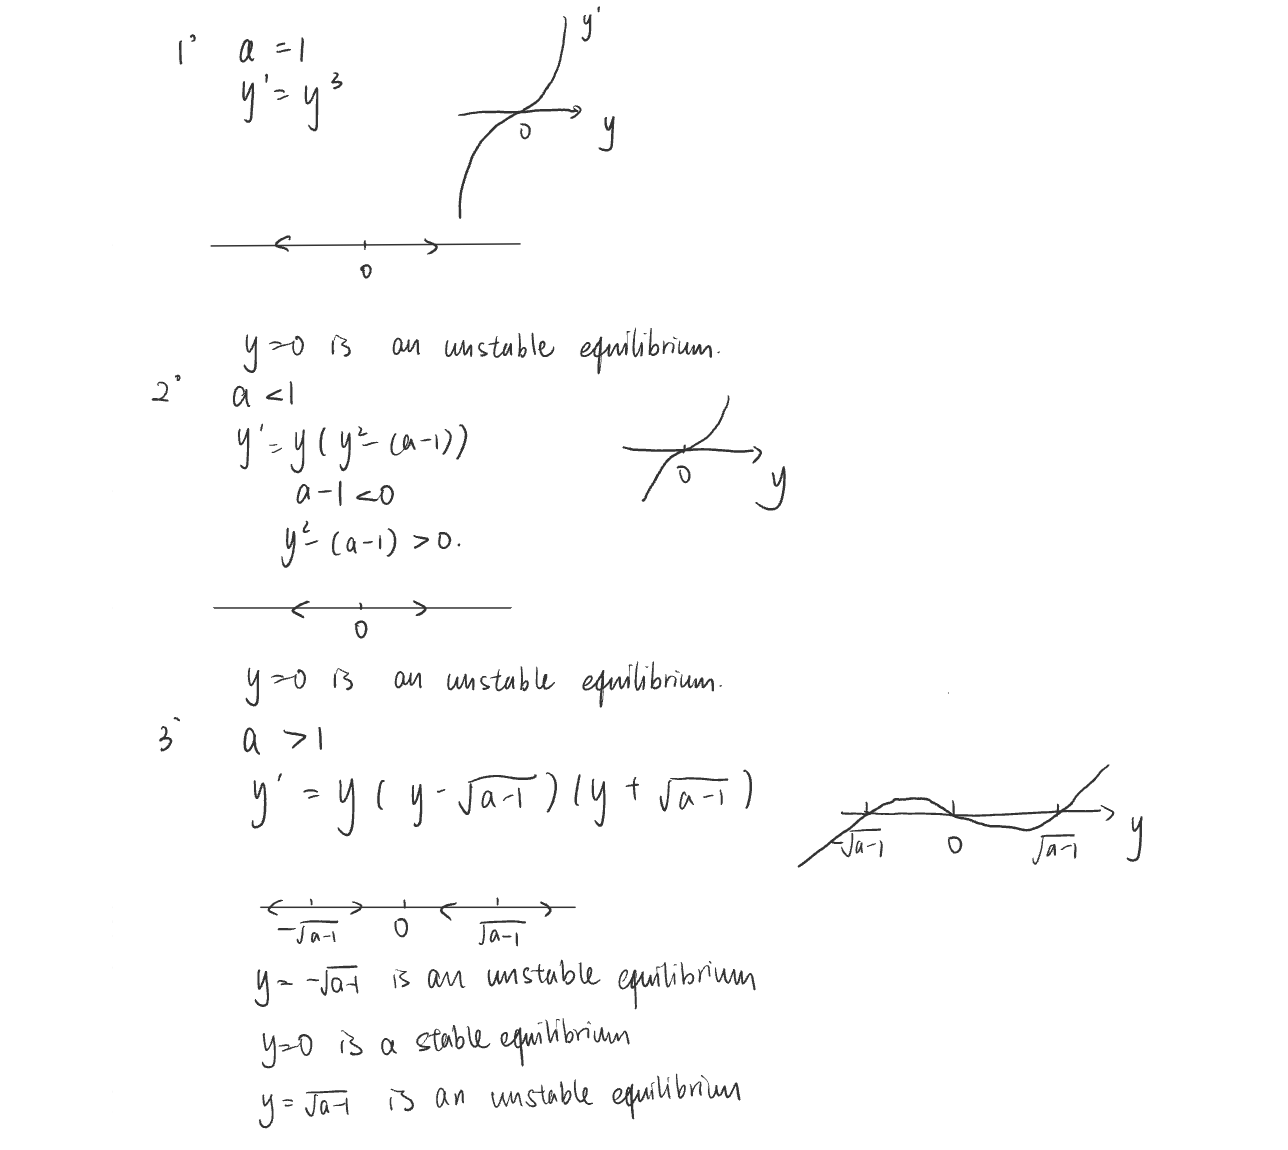 1° a = 1
y' = y³
y'
y
0
0
y=0 is an unstable equilibrium.
2° a < 1
y' = y ( y² - (a-1))
a-1 < 0
y² - (a-1) > 0.
0
y
0
y=0 is an unstable equilibrium.
3° a > 1
y' = y ( y - √a-1 ) ( y + √a-1 )
-√a-1 0 √a-1 y
-√a-1 0 √a-1
y = -√a-1 is an unstable equilibrium
y=0 is a stable equilibrium
y = √a-1 is an unstable equilibrium